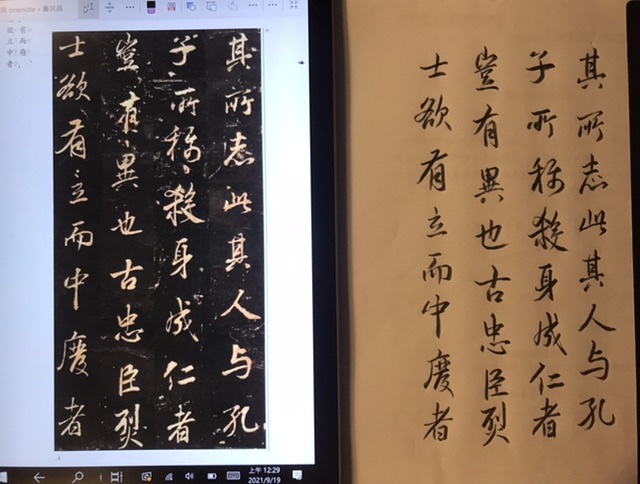 onenote
欲有
立而
中廢
者；
其所志此其人与孔
子所称殺身成仁者
豈有異也古忠臣烈
士欲有立而中廢者
其所志此其人与孔
子所称殺身成仁者
豈有異也古忠臣烈
士欲有立而中廢者
上午 12:29
2021/9/19